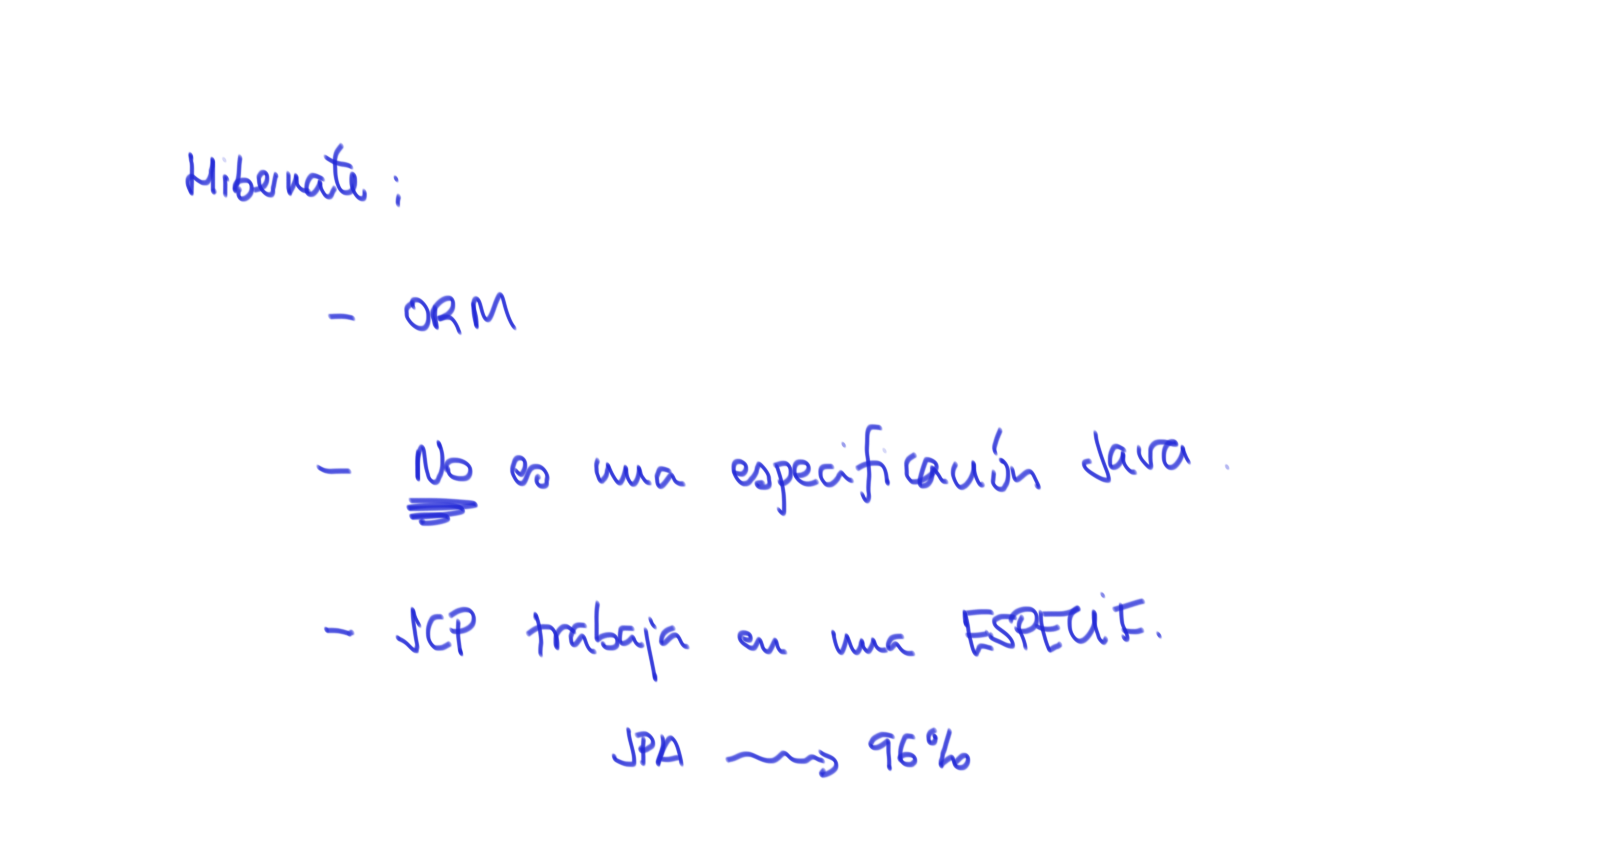 Hibernate :
- ORM
- No es una especificación Java.
- JCP trabaja en una ESPECIF.
JPA ⟿ 96%